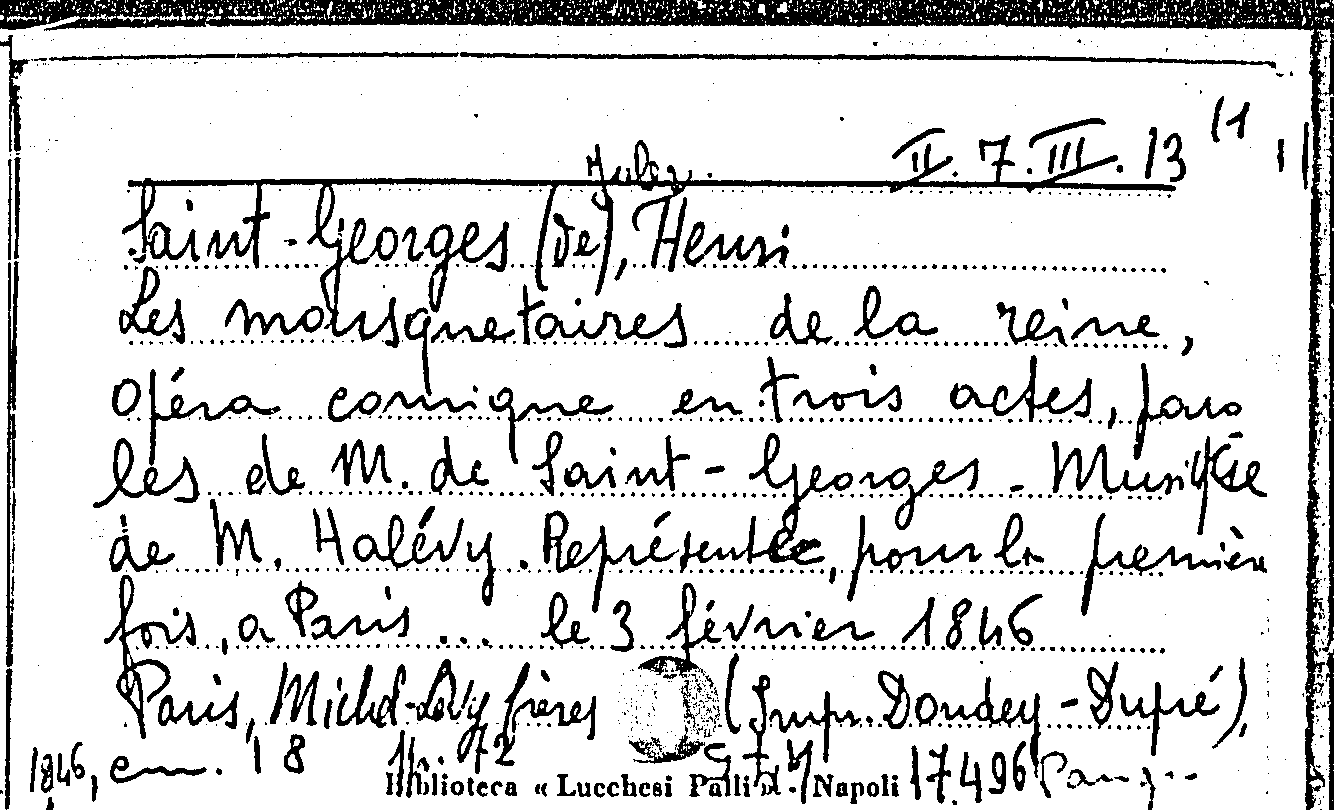 II. 7. III. 13 (1
Jules
Saint-Georges (de), Henri
Les mousquetaires de la reine,
Opéra comique en trois actes, paro
les de M. de Saint-Georges - Musique
de M. Halévy. Représentée, pour la première
fois, a Paris ... le 3 février 1846
Paris, Michel-Lévy frères (Imp. Dondey-Dupré),
1846, cm. 18 72 17496
Biblioteca « Lucchesi Palli » - Napoli